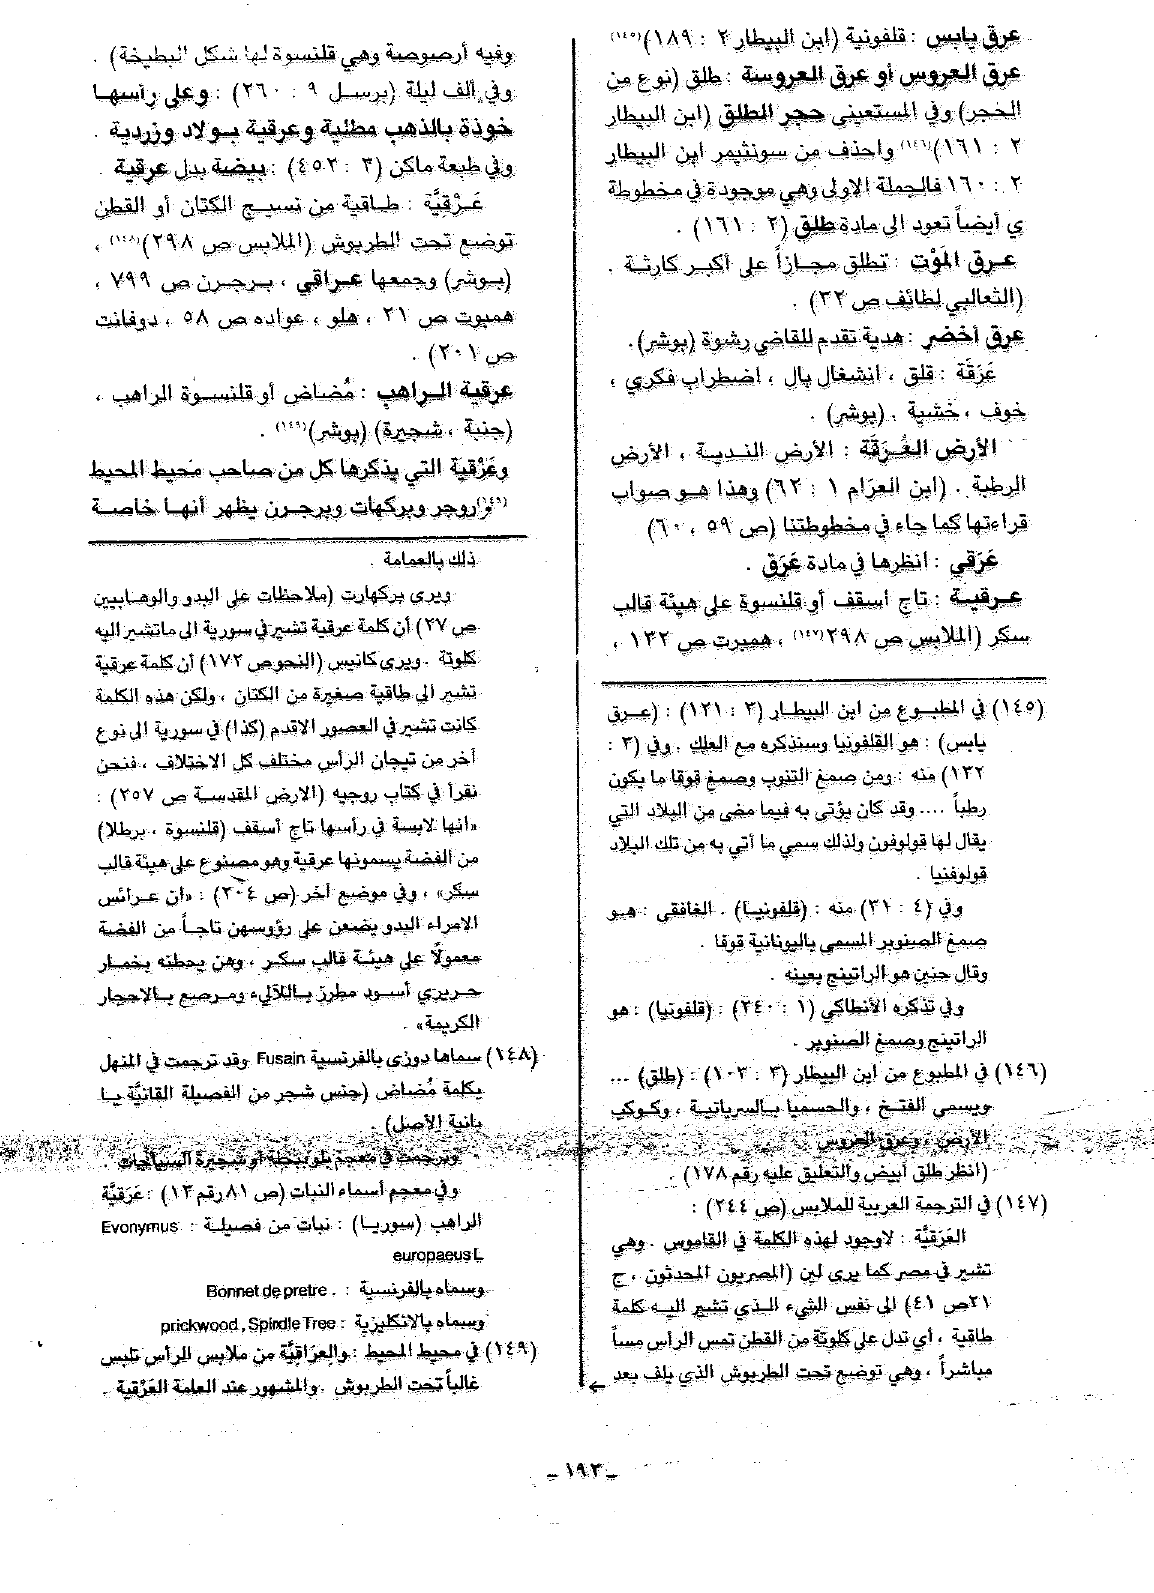 عرق يابس : قلفونية (ابن البيطار ٢ : ١٨٩)(١٤٥)
عرق العروس أو عرق العروسة : طلق (نوع من
الحجر) وفي المستعيني حجر الطلق (ابن البيطار
٢ : ١٦١)(١٤٦) واحذف من سونثيمر ابن البيطار
٢ : ١٦٠ فالجملة الاولى وهي موجودة في مخطوطة
ي أيضاً تعود الى مادة طلق (٢ : ١٦١) .
عرق المَوْت : تطلق مجازاً على أكبر كارثة .
(الثعالبي لطائف ص ٣٢) .
عرق أخضر : هدية تقدم للقاضي رشوة (بوشر).
عَرَقَة : قلق ، انشغال بال ، اضطراب فكري ،
خوف ، خشية . (بوشر) .
الأرض العُرَقَّة : الأرض الندية ، الأرض
الرطبة . (ابن العوام ١ : ٦٢) وهذا هو صواب
قراءتها كما جاء في مخطوطتنا (ص ٥٩ ، ٦٠)
عَرَقي : انظرها في مادة عَرَق .
عرقية : تاج أسقف أو قلنسوة على هيئة قالب
سكر (الملابس ص ٢٩٨(١٤٧) ، همبرت ص ١٣٢ ،
(١٤٥) في المطبوع من ابن البيطار (٣ : ١٢١) : (عرق
يابس) : هو القلفونيا وسنذكره مع العلك . وفي (٣ :
١٣٢) منه : ومن صمغ التنوب وصمغ قوقا ما يكون
رطباً .... وقد كان يؤتى به فيما مضى من البلاد التي
يقال لها قولوفون ولذلك سمي ما أتي به من تلك البلاد
قولوفنيا .
وفي (٤ : ٣١) منه : (قلفونيا) . الغافقي : هو
صمغ الصنوبر المسمى باليونانية قوقا .
وقال حنين هو الراتينج بعينه .
وفي تذكره الأنطاكي (١ : ٢٤٠) : (قلفونيا) : هو
الراتينج وصمغ الصنوبر .
(١٤٦) في المطبوع من ابن البيطار (٣ : ١٠٣) : (طلق) ...
ويسمى الفتخ ، والحسميا بالسريانية ، وكوكب
الأرض ، وعرق العروس
(انظر طلق أبيض والتعليق عليه رقم ١٧٨) .
(١٤٧) في الترجمة العربية للملابس (ص ٢٤٤) :
العَرَقيَّة : لاوجود لهذه الكلمة في القاموس . وهي
تشير في مصر كما يرى لين (المصريون المحدثون ، ج
١ص ٤١) الى نفس الشيء الذي تشير اليه كلمة
طاقية ، أي تدل على كلوتة من القطن تمس الرأس مساً
مباشراً ، وهي توضع تحت الطربوش الذي يلف بعد
وفيه أرصوصة وهي قلنسوة لها شكل البطيخة) .
وفي ألف ليلة (برسل ٩ : ٢٦٠) : وعلى رأسها
خوذة بالذهب مطلية وعرقية بولاد وزردية .
وفي طبعة ماكن (٣ : ٤٥٢) : بيضة بدل عرقية .
عَرْقيَّة : طاقية من نسيج الكتان أو القطن
توضع تحت الطربوش (الملابس ص ٢٩٨)(١٤٨) ،
(بوشر) وجمعها عراقي ، برجرن ص ٧٩٩ ،
همبرت ص ٢١ ، هلو ، عواده ص ٥٨ ، دوفانت
ص ٢٠١) .
عرقية الراهب : مُضاض أو قلنسوة الراهب ،
(جنبة ، شجيرة) (بوشر)(١٤٩) .
وعَرْقية التي يذكرها كل من صاحب محيط المحيط
(١٤٩)وروجر وبركهات وبرجرن يظهر أنها خاصة
ذلك بالعمامة .
ويرى بركهارت (ملاحظات على البدو والوهابيين
ص ٢٧) أن كلمة عرقية تشير في سورية الى ماتشير اليه
كلوتة . ويرى كانيس (النحوص ١٧٢) أن كلمة عرقية
تشير الى طاقية صغيرة من الكتان ، ولكن هذه الكلمة
كانت تشير في العصور الاقدم (كذا) في سورية الى نوع
آخر من تيجان الرأس مختلف كل الاختلاف ، فنحن
نقرأ في كتاب روجيه (الارض المقدسة ص ٢٥٧) :
«أنها لابسة في رأسها تاج أسقف (قلنسوة ، برطلا)
من الفضة يسمونها عرقية وهو مصنوع على هيئة قالب
سكر» ، وفي موضع آخر (ص ٢٠٤) : «ان عرائس
الامراء البدو يضعن على رؤوسهن تاجاً من الفضة
معمولاً على هيئة قالب سكر ، وهن يحطنه بخمار
حريري أسود مطرز باللآليء ومرصع بالاحجار
الكريمة» .
(١٤٨) سماها دوزي بالفرنسية Fusain وقد ترجمت في المنهل
بكلمة مُضاض (جنس شجر من الفصيلة القانيَّة يا
بانية الأصل) .
وترجمت في معجم بلو ببشظة أو شجيرة السياجات .
وفي معجم أسماء النبات (ص ٨١ رقم ١٣) : عَرَقيَّة
الراهب (سوريا) : نبات من فصيلة : Evonymus
europaeus L
وسماه بالفرنسية : . Bonnet de pretre
وسماه بالانكليزية : prickwood , Spindle Tree
(١٤٩) في محيط المحيط : والعراقيَّة من ملابس الرأس تلبس
غالباً تحت الطربوش . والمشهور عند العامة العَرْقية .
ـ ١٩٣ ـ